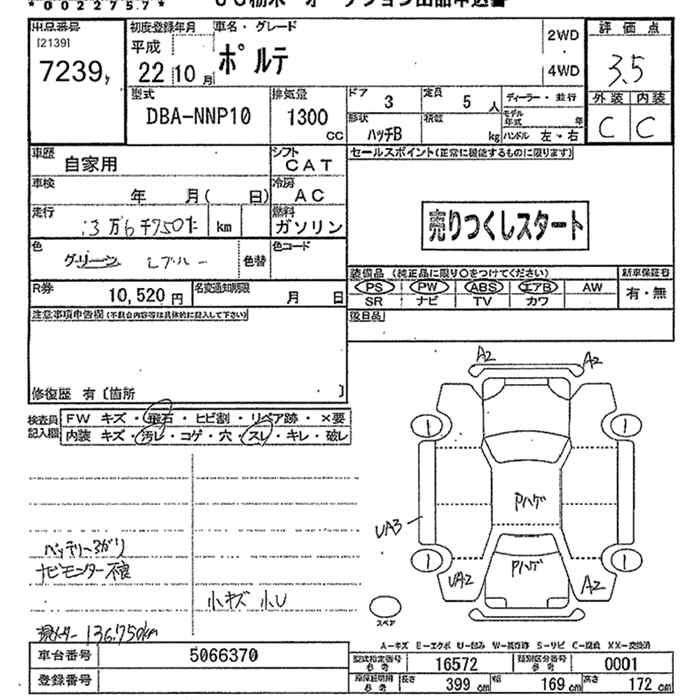 *00227 5.7*
出品番号
[2139]
7239
初度登録年月
平成
22 10 月
車名・グレード
ポルテ
2WD
4WD
評価点
3.5
外装 内装
C C
型式
DBA-NNP10
排気量
1300
CC
ドア
3
定員
5 人
ディーラー・並行
形状
ハッチB
積載
kg
モデル年式 年
ハンドル 左・右
車歴
自家用
シフト
CAT
車検
年 月( 日)
冷房
AC
走行
13万6千750た km
燃料
ガソリン
色
グリーン
色替
色コード
R券
10,520 円
名変通知期限
月 日
セールスポイント(正常に機能するものに限ります)
売りつくしスタート
装備品 (純正品に限り○をつけてください)
PS PW ABS エアB AW
SR ナビ TV カワ
新車保証書
有・無
後日品
注意事項申告欄(不具合内容等は具体的に記入して下さい)
修復歴 有〔箇所 〕
検査員記入欄
FW キズ・飛石・ヒビ割・リペア跡・×要
内装 キズ・汚レ・コゲ・穴・スレ・キレ・破レ
バッテリー上がり
ナビモニター不良
小キズ 小U
現メーター 136,750km
A2 A2
Pハゲ
UA3
Pハゲ
UA2 A2
スペア
A-キズ E-エクボ U-凹み W-板跡 S-サビ C-腐食 XX-交換済
車台番号
5066370
登録番号
型式指定番号 参考
16572
類別区分番号 参考
0001
長さ 399 cm
幅 169 cm
高さ 172 cm